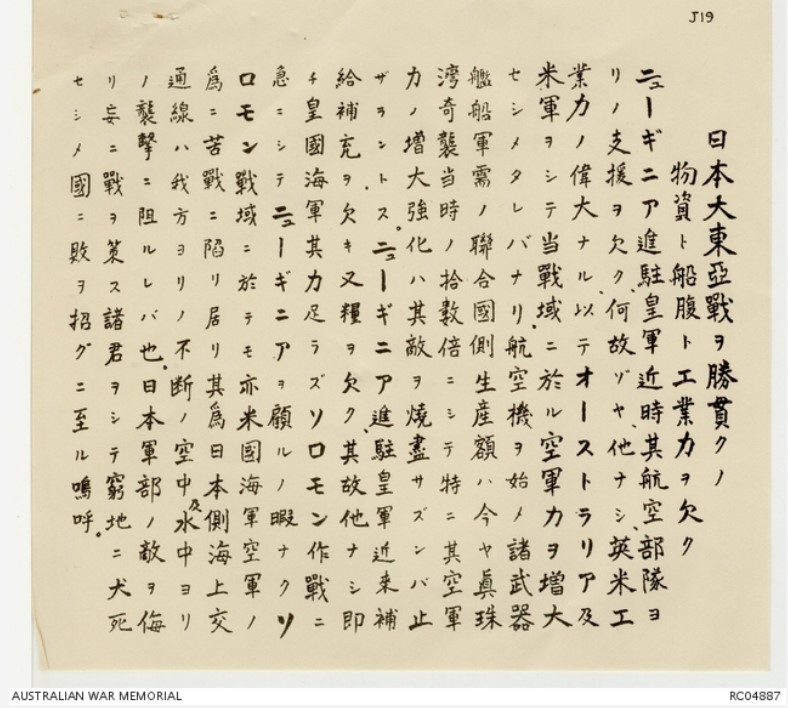 J19
日本大東亞戰ヲ勝貫クノ
物資ト船腹ト工業力ヲ欠ク
ニューギニア進駐皇軍近時其航空部隊ヨ
リノ支援ヲ欠ク、何故ゾヤ、他ナシ、英米工
業力ノ偉大ナル、以テオーストラリア及
米軍ヲシテ当戰域ニ於ル空軍力ヲ増大
セシメタレバナリ、航空機ヲ始メ諸武器
艦船軍需ノ聯合國側生産額ハ今ヤ眞珠
湾奇襲当時ノ拾数倍ニシテ特ニ其空軍
力ノ増大強化ハ其敵ヲ燒盡サズンバ止
ザラントス。ニューギニア進駐皇軍近来補
給補充ヲ欠キ又糧ヲ欠ク、其故他ナシ即
チ皇國海軍其力足ラズソロモン作戰ニ
急ニシテニューギニアヲ顧ルノ暇ナクソ
ロモン戰域ニ於テモ亦米國海軍空軍ノ
爲ニ苦戰ニ陷リ居リ其爲日本側海上交
通線ハ我方ヨリノ不断ノ空中及水中ヨリ
ノ襲擊ニ阻ルレバ也。日本軍部ノ敵ヲ侮
リ妄ニ戰ヲ策ス諸君ヲシテ窮地ニ犬死
セシメ國ニ敗ヲ招グニ至ル嗚呼。
AUSTRALIAN WAR MEMORIAL
RC04887